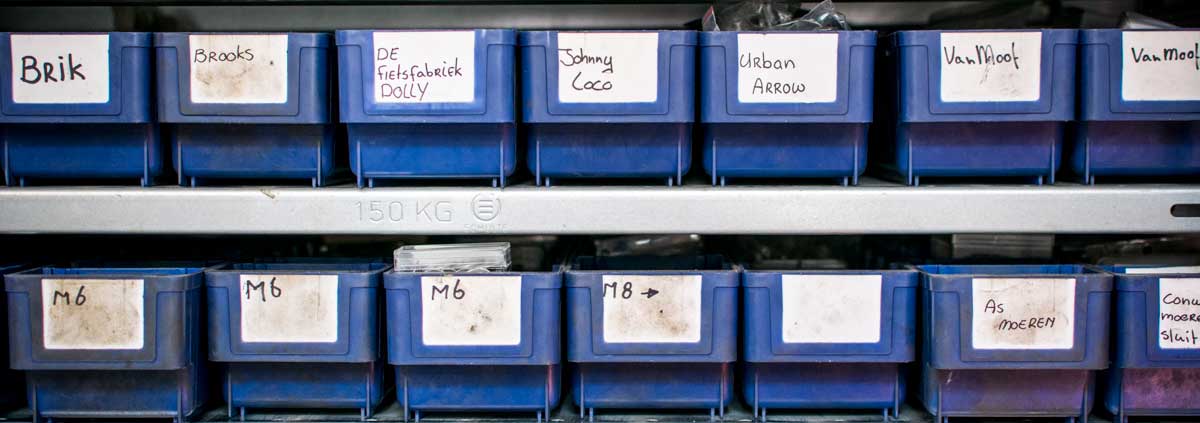 Brik
Brooks
DE
fietsfabriek
DOLLY
Johnny
Loco
Urban
Arrow
VanMoof
VanMoof
150 KG
M6
M6
M6
M8 →
As
moeren
sluit